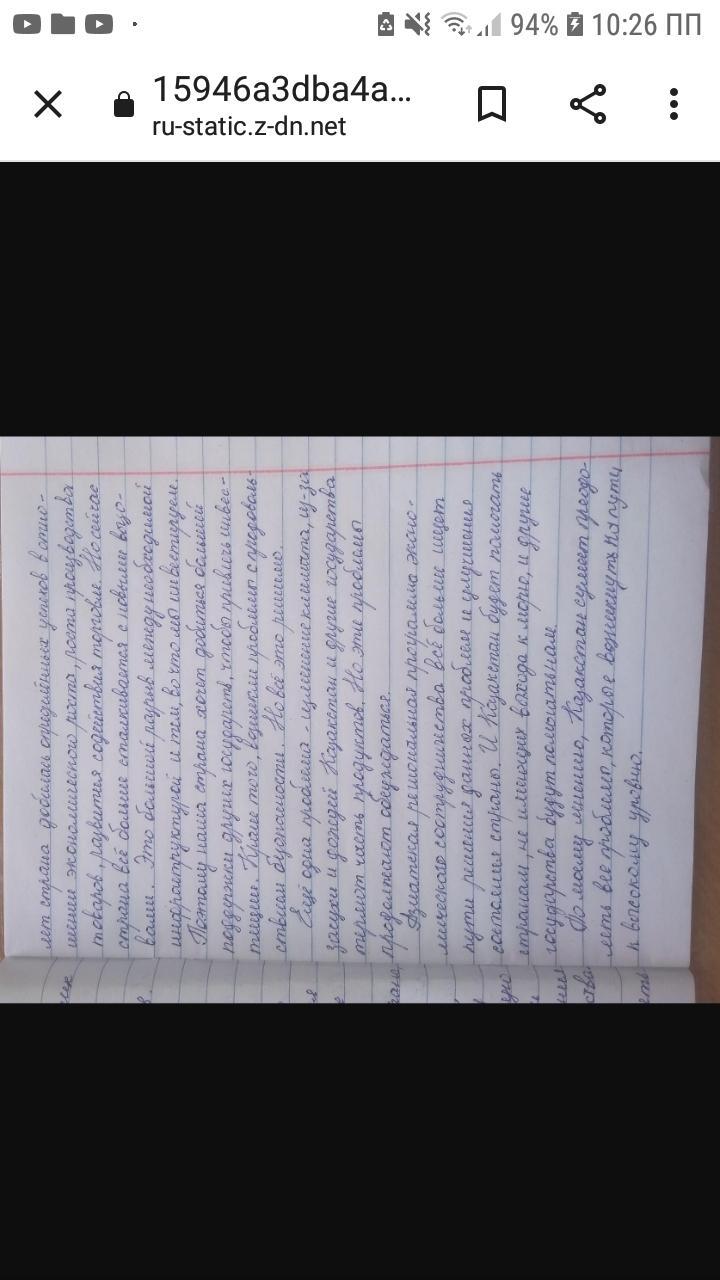 94% 10:26 ПП
15946a3dba4a...
ru-static.z-dn.net
лет страна добилась определённых успехов в отно-
шении экономического роста, роста производства
товаров, развития содействия торговле. Но сейчас
страна всё больше сталкивается с новыми вызо-
вами. Это больший разрыв между необходимой
инфраструктурой и тем, во что мы инвестируем.
Поэтому наша страна хочет добиться большей
поддержки других государств, чтобы привлечь инвес-
тиции. Кроме того, возникли проблемы с продоволь-
ствием безопасности. Но всё это решимо.
Ещё одна проблема - изменение климата, из-за
засухи и дождей Казахстан и другие государства
теряют часть продуктов. Но эти проблемы
продолжают обсуждаться.
Азиатская региональная программа эконо-
мического сотрудничества всё больше ищет
пути решения данных проблем и улучшения
состояния страны. И Казахстан будет помогать
странам, не имеющих выхода к морю, и другие
государства будут помогать нам.
По моему мнению, Казахстан сумеет преодо-
леть все проблемы, которые возникнуть на пути
к высокому уровню.